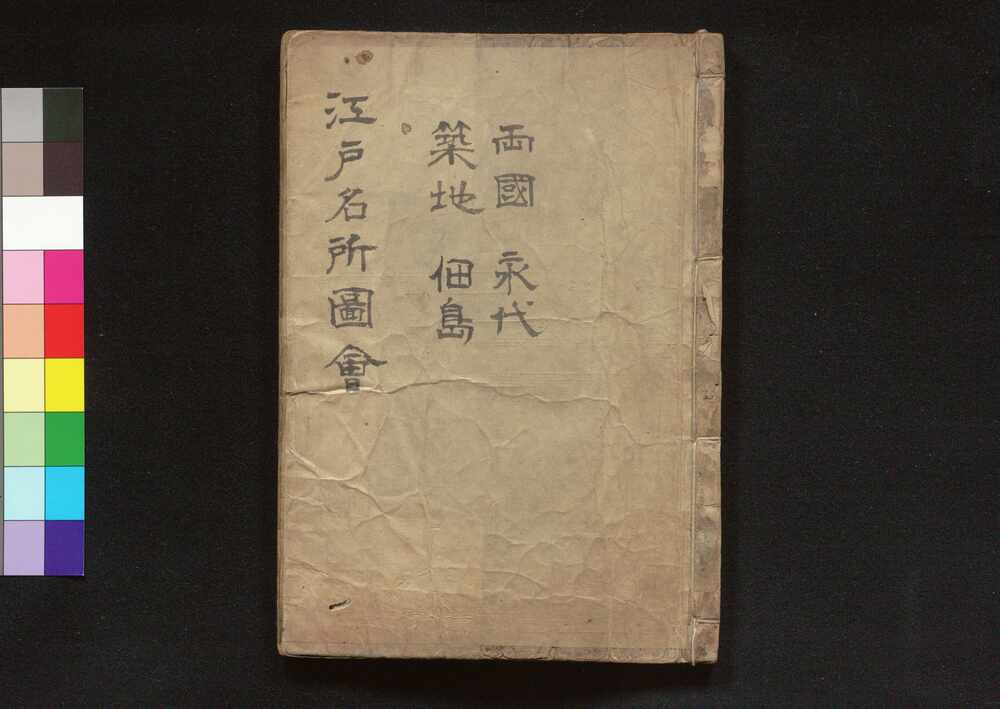 両國 永代
築地 佃島
江戸名所圖會